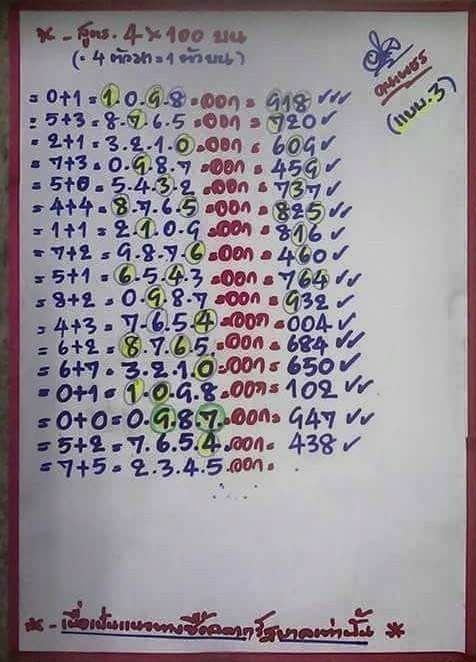 * - สูตร. 4 x 100 บน
(= 4 ตัวมา = 1 ตัวบน)
(แบบ.3)
= 0+1 = 1.0.9.8 = ออก = 918 ✓✓✓
= 5+3 = 8.7.6.5 = ออก = 720 ✓
= 2+1 = 3.2.1.0 = ออก = 609 ✓
= 7+3 = 0.9.8.7 = ออก = 459 ✓
= 5+0 = 5.4.3.2 = ออก = 737 ✓
= 4+4 = 8.7.6.5 = ออก = 825 ✓✓
= 1+1 = 2.1.0.9 = ออก = 816 ✓
= 7+2 = 9.8.7.6 = ออก = 460 ✓
= 5+1 = 6.5.4.3 = ออก = 764 ✓✓
= 8+2 = 0.9.8.7 = ออก = 932 ✓
= 4+3 = 7.6.5.4 = ออก = 004 ✓
= 6+2 = 8.7.6.5. = ออก = 684 ✓✓
= 6+7 = 3.2.1.0 = ออก = 650 ✓
= 0+1 = 1.0.9.8 = ออก = 102 ✓✓
= 0+0 = 0.9.8.7. = ออก = 947 ✓✓
= 5+2 = 7.6.5.4. ออก = 438 ✓
= 7+5 = 2.3.4.5. ออก =
* - เพื่อเป็นแนวทางซื้อสลากรัฐบาลเท่านั้น *